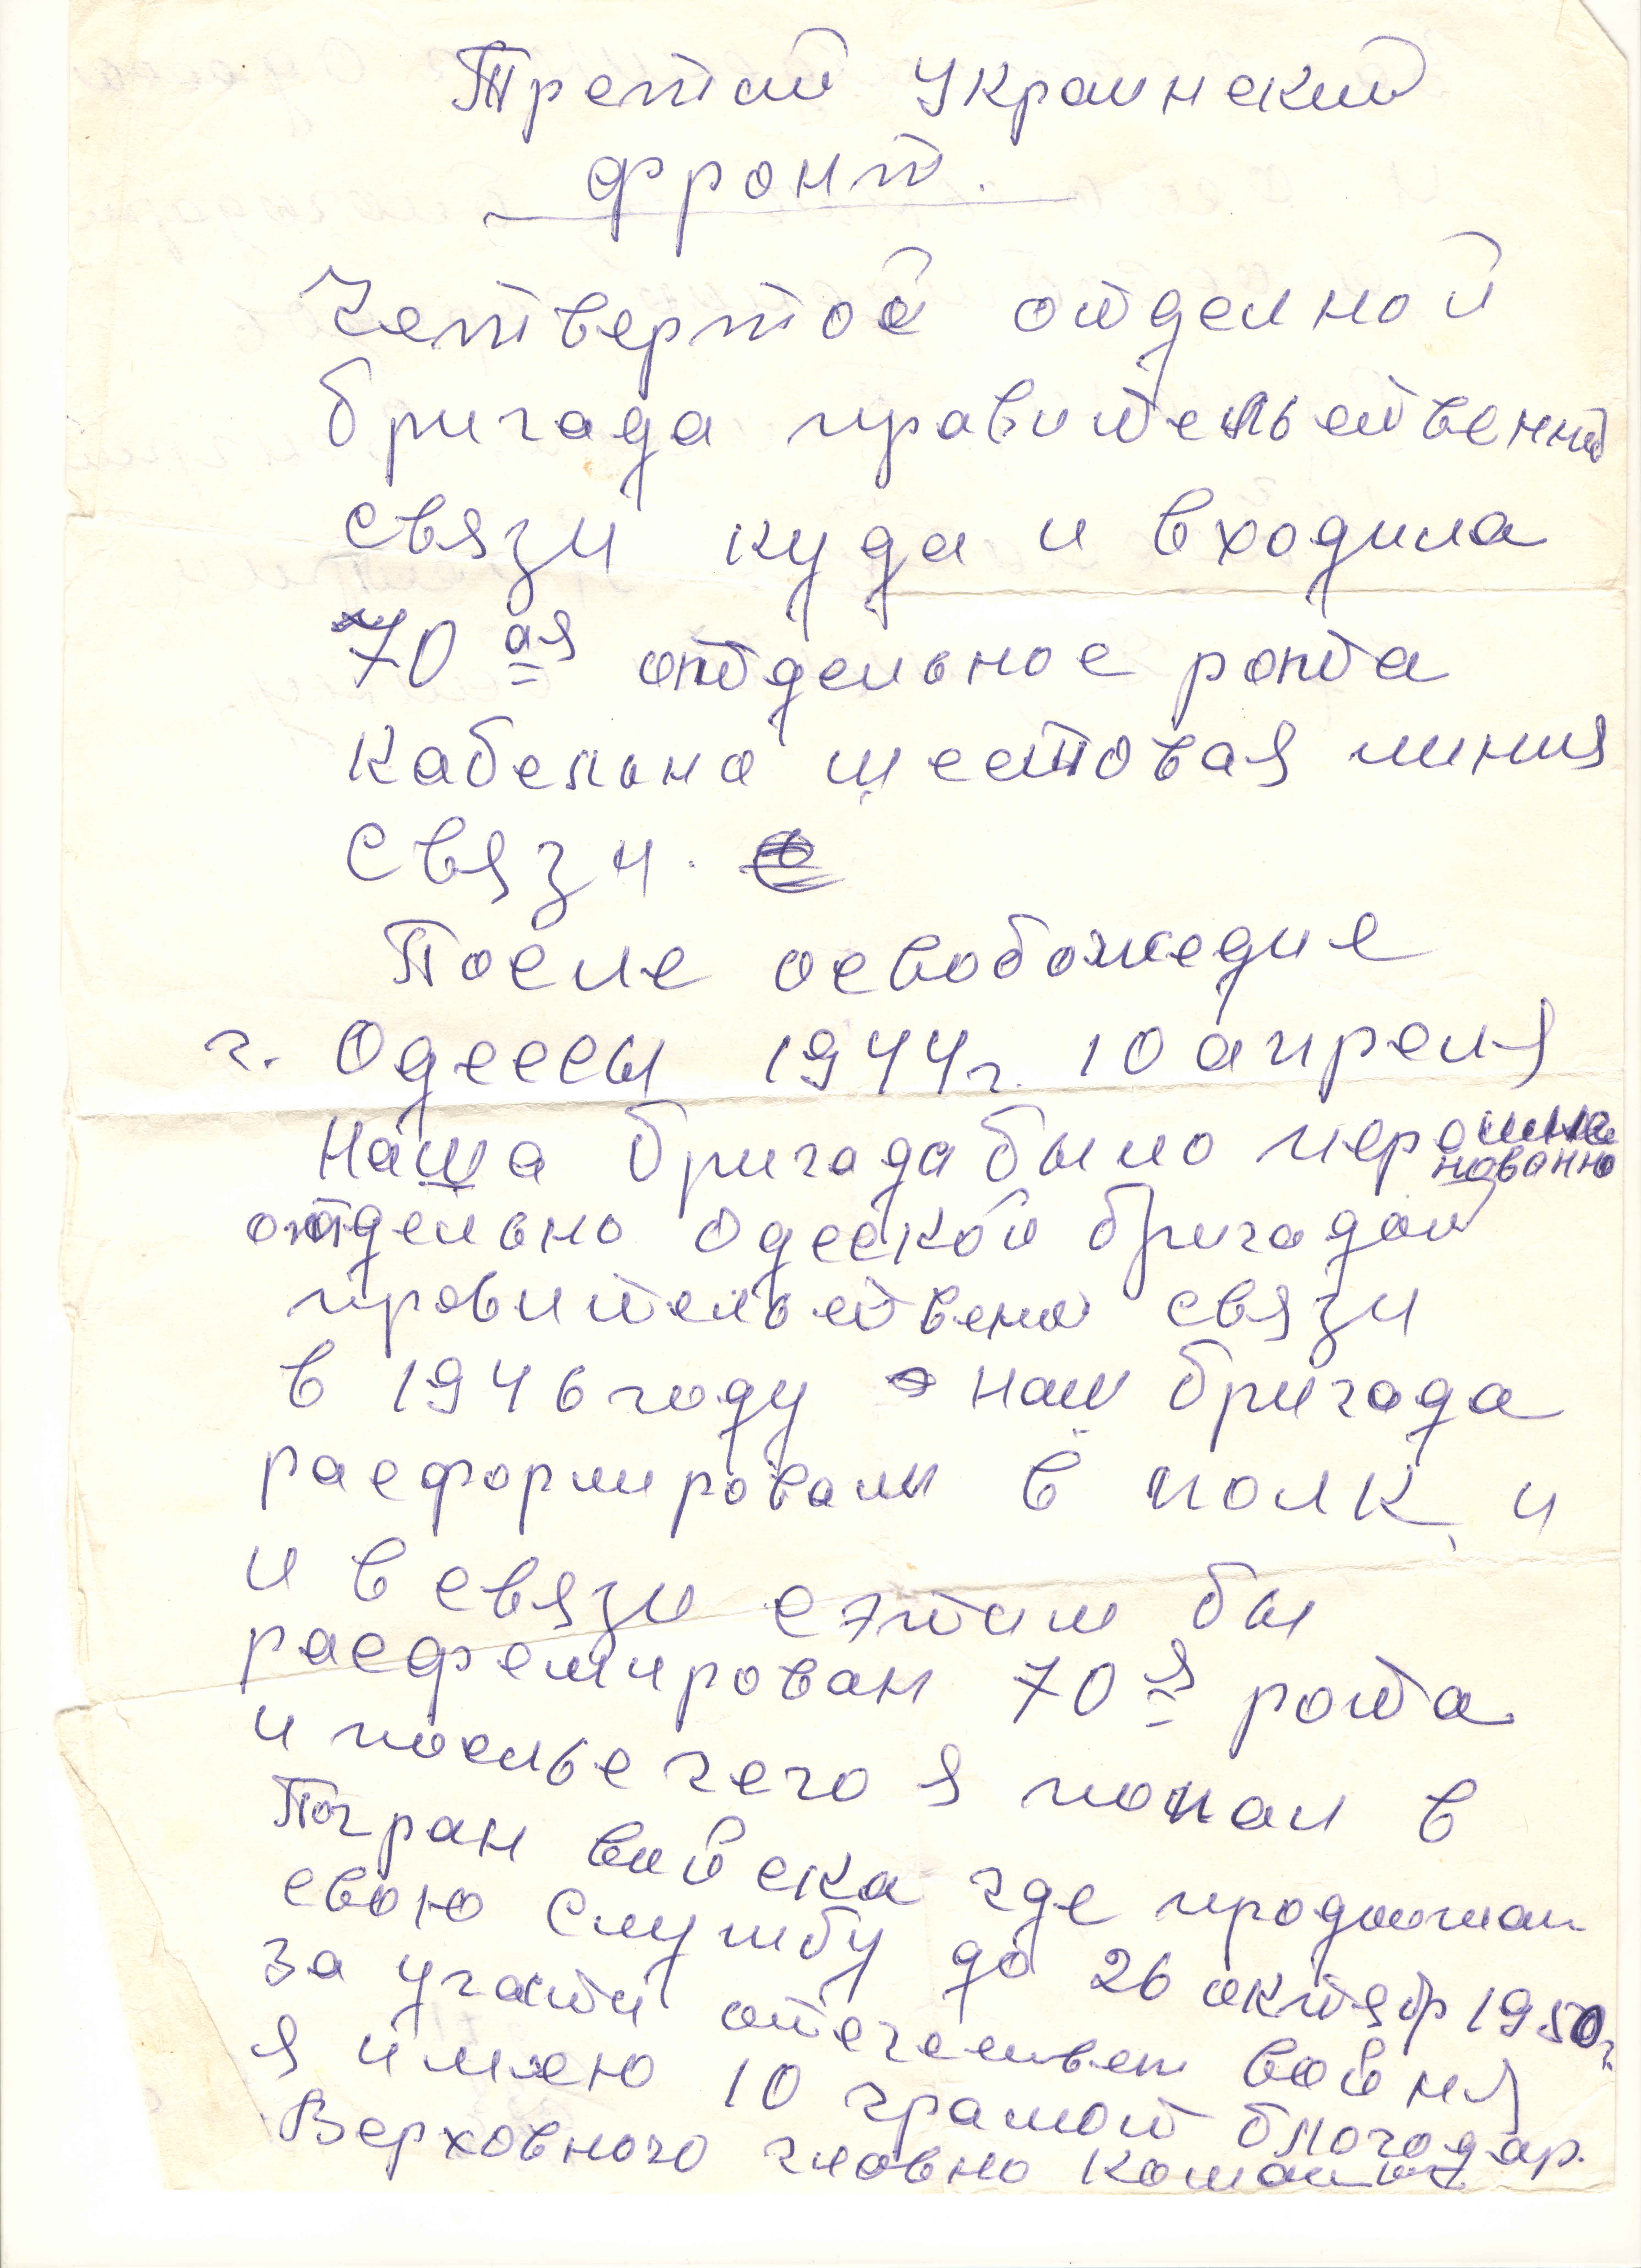 Третий Украинский
фронт.
Четвертой отделной
бригада правительственной
связи куда и входила
70ая отдельное рота
кабельно шестовая линия
связи.
После освобождие
г. Одессы 1944г. 10 апреля
Наша бригада было переимено
нованно
отдельно Одесской бригадой
правительствено связи
в 1946 году наш бригада
расформировали в полк и
и в связи сэтим бы
расфемирован 70я рота
и посльечего я попал в
Погран войска где продолжал
свою службу до 26 октябр 1950г.
За участи отечествен войня
я имею 10 грамот благодар.
Верховного главно